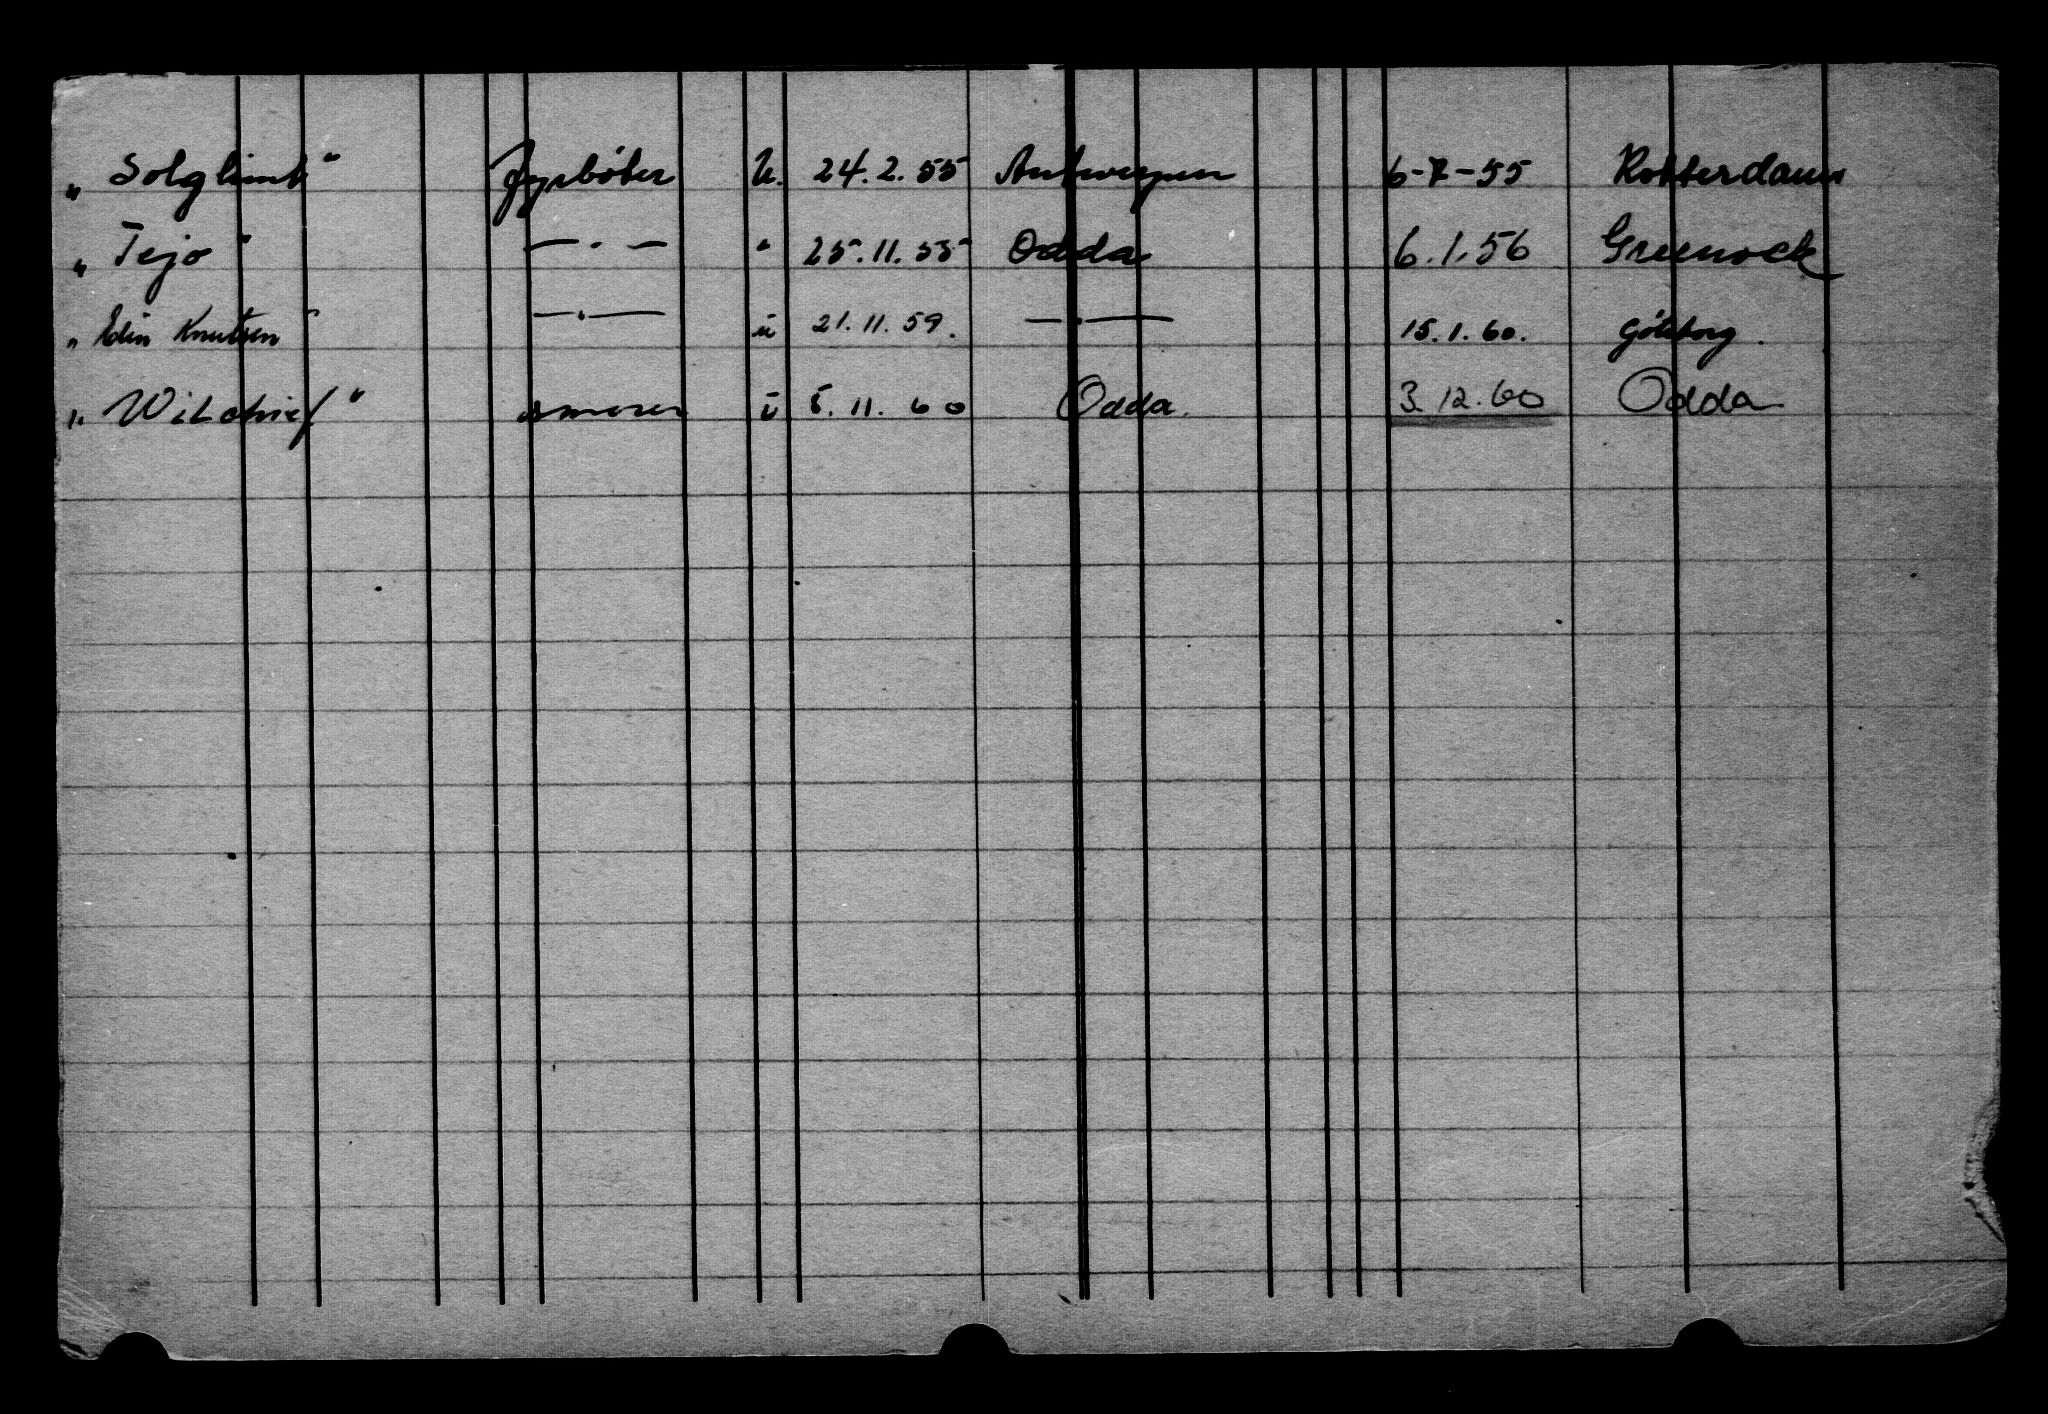 „ Solglimt " fyrbøter U. 24.2.55 Antwerpen 6-7-55 Rotterdam
„ Tejo " — . — " 25.11.55 Odda 6.1.56 Greenock
„ Elin Knutsen " — . — u 21.11.59. — . — 15.1.60. Göteborg.
„ Wilchief " smører u 5.11.60 Odda. 3.12.60 Odda